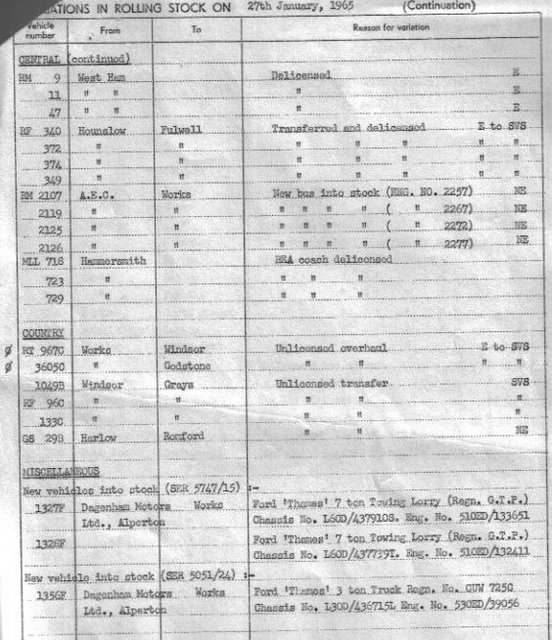 ATIONS IN ROLLING STOCK ON 27th January, 1965 (Continuation)
Vehicle number From To Reason for variation
CENTRAL (continued)
RM 9 West Ham Delicensed E
11 " " " E
47 " " " E
RF 340 Hounslow Fulwell Transferred and delicensed E to SVS
372 " " " " " " " "
374 " " " " " " " "
349 " " " " " " " "
RM 2107 A.E.C. Works New bus into stock (ENG. NO. 2257) NE
2119 " " " " " " ( " 2267) NE
2125 " " " " " " ( " 2272) NE
2126 " " " " " " ( " 2277) NE
MLL 718 Hammersmith BEA coach delicensed
723 " " " "
729 " " " "
COUNTRY
ø RT 967C Works Windsor Unlicensed overhaul E to SVS
ø 3605C " Godstone " " " " "
1049B Windsor Grays Unlicensed transfer SVS
RF 96C " " " " "
133C " " " " "
GS 29B Harlow Romford " " NE
MISCELLANEOUS
New vehicles into stock (SER 5747/15) :-
1327F Dagenham Motors Works Ford 'Thames' 7 ton Towing Lorry (Regn. G.T.P.)
Ltd., Alperton Chassis No. L60D/437910S. Eng. No. 510ED/133651
1328F Ford 'Thames' 7 ton Towing Lorry (Regn. G.T.P.)
Chassis No. L60D/437739T. Eng. No. 510ED/132411
New vehicle into stock (SER 5051/24) :-
1356F Dagenham Motors Works Ford 'Thames' 3 ton Truck Regn. No. GUW 725C
Ltd., Alperton Chassis No. L30D/436715L Eng. No. 530ED/39056